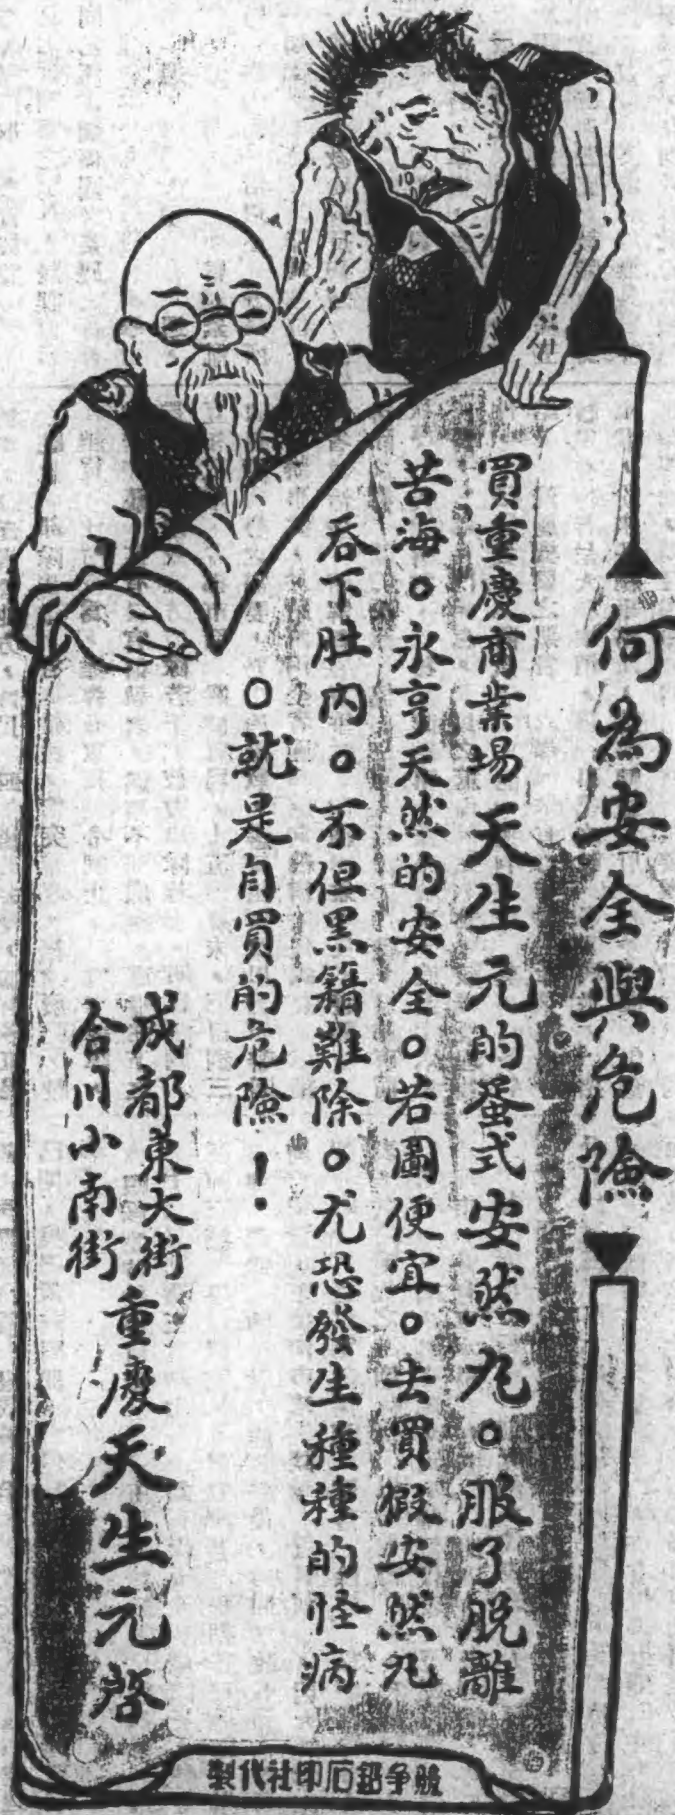 何為安全與危險
買重慶商業場天生元的蛋式安然丸。服了脫離
苦海。永亨天然的安全。若圖便宜。去買假安然丸
吞下肚內。不但黑籍難除。尤恐發生種種的怪病
。就是自買的危險！
成都東大街
合川小南街
重慶天生元啓
競爭超石印社代製